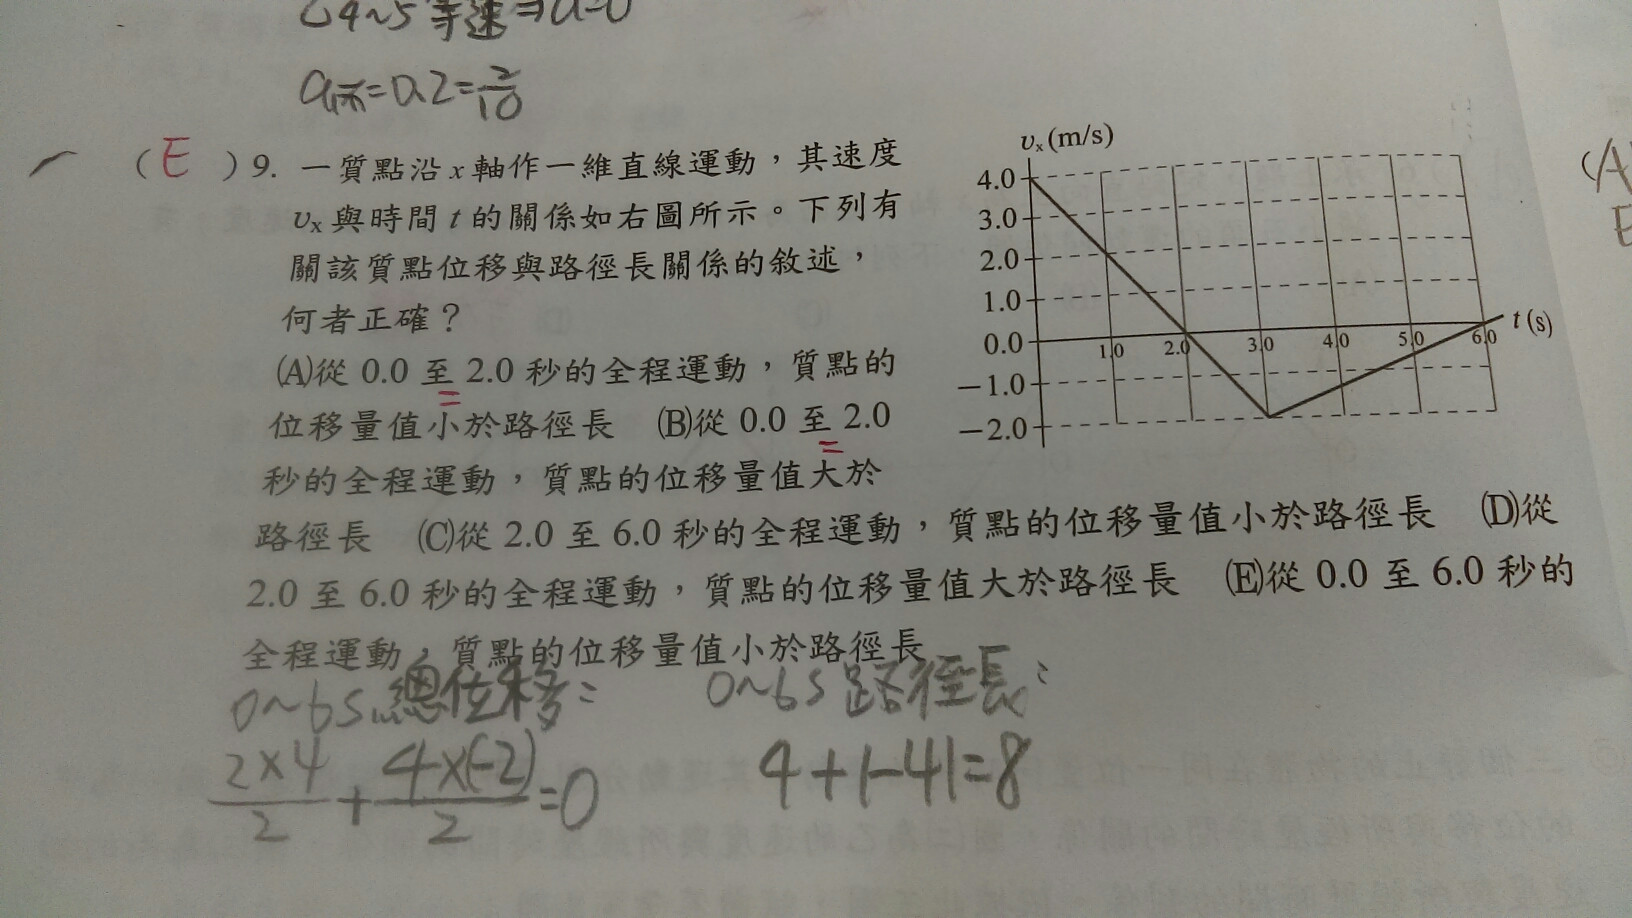 4~5 等速⇒a=0
=0.2=2/10
(E) 9. 一質點沿 x 軸作一維直線運動，其速度
vx 與時間 t 的關係如右圖所示。下列有
關該質點位移與路徑長關係的敘述，
何者正確？
(A)從 0.0 至 2.0 秒的全程運動，質點的
位移量值小於路徑長 (B)從 0.0 至 2.0
秒的全程運動，質點的位移量值大於
路徑長 (C)從 2.0 至 6.0 秒的全程運動，質點的位移量值小於路徑長 (D)從
2.0 至 6.0 秒的全程運動，質點的位移量值大於路徑長 (E)從 0.0 至 6.0 秒的
全程運動，質點的位移量值小於路徑長
vx (m/s)
4.0
3.0
2.0
1.0
0.0
-1.0
-2.0
1.0 2.0 3.0 4.0 5.0 6.0 t (s)
0~6s 總位移：
2×4/2 + 4×(-2)/2 = 0
0~6s 路徑長：
4+|-4|=8
(A
E